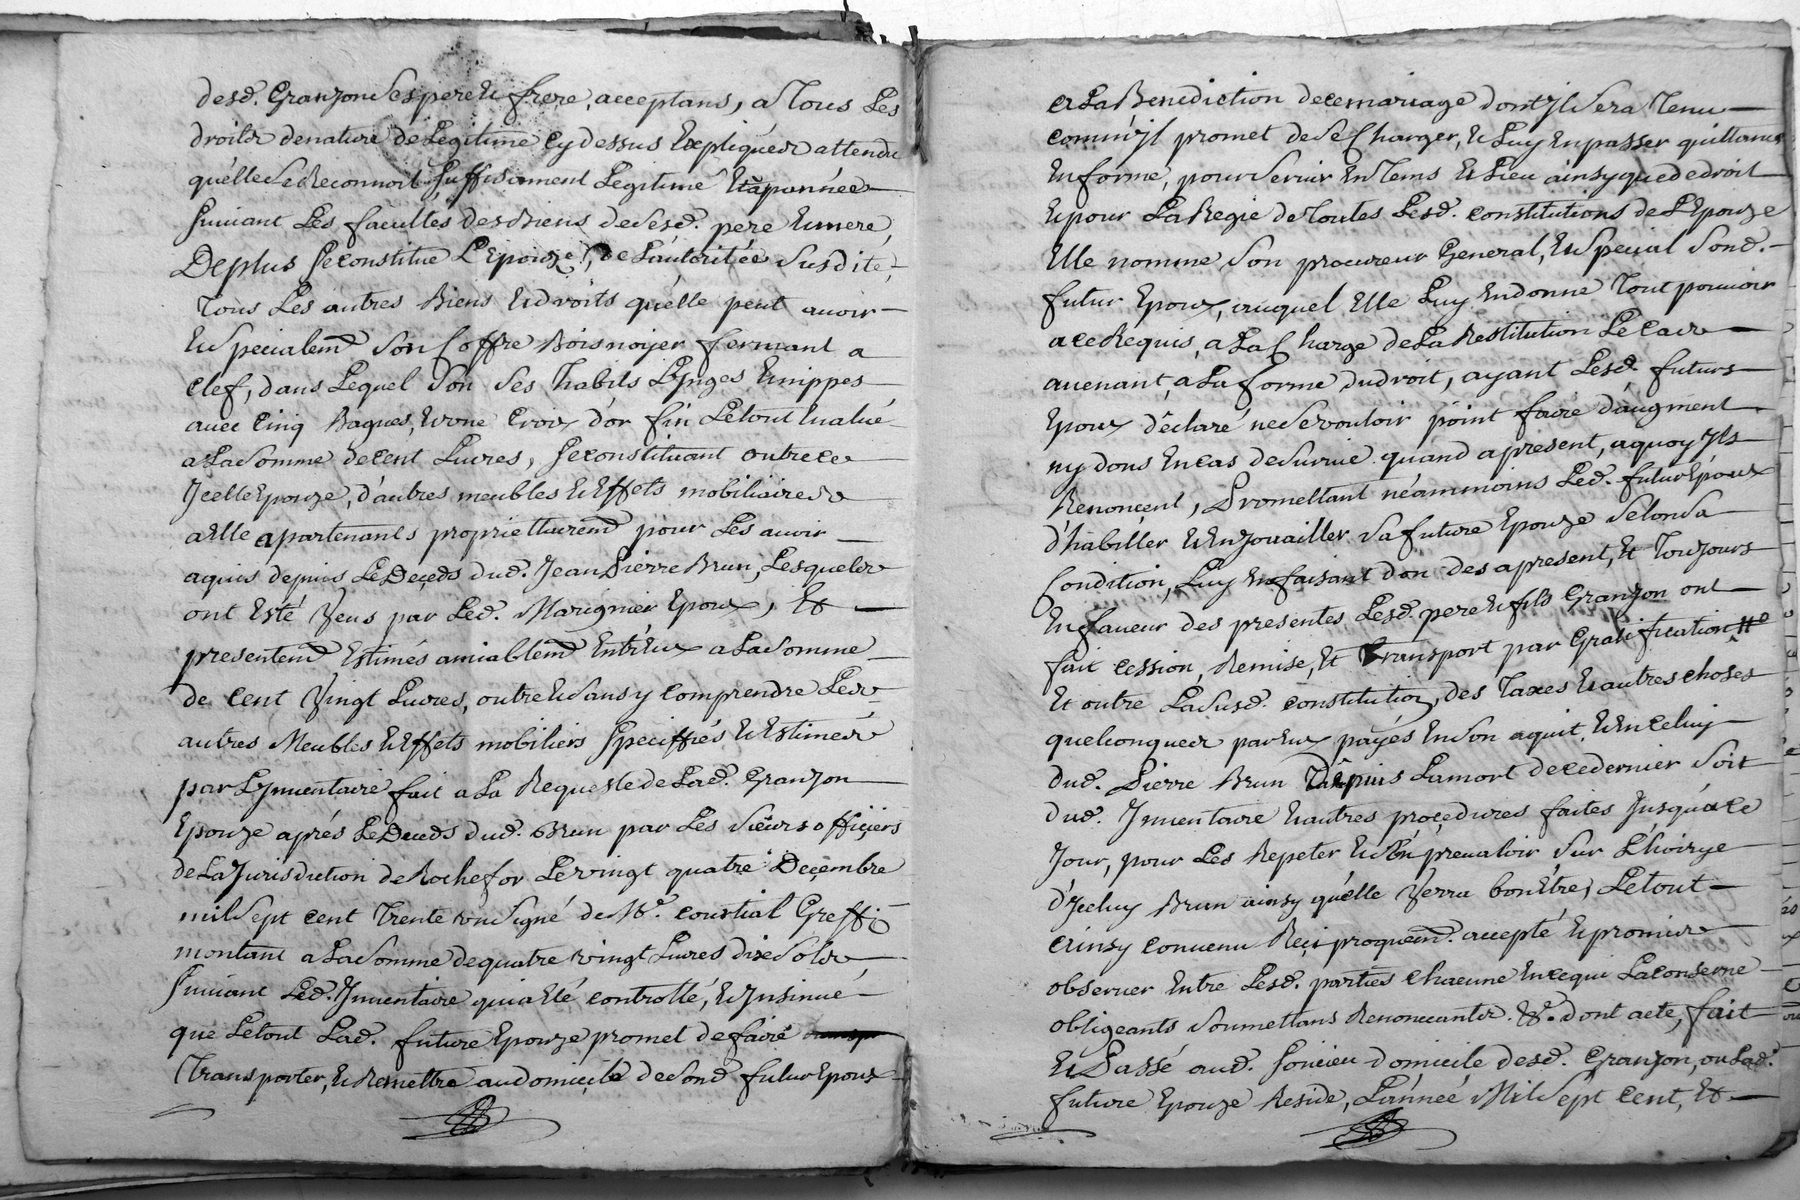 desd. Granjon Ses pere et frere, acceptans, a Tous Les
droits de nature de Legitime Cy dessus Expliquées attendu
qu'elle Se Reconnoit Suffisament Legitimé Et apannée
Suivant Les facultés des Biens de Sesd. pere Et mere,
De plus Se constitue L'Epouze, de L'autorité Susdite,
Tous Les autres Biens Et droits qu'elle peut avoir
Et Specialemt Son Coffre Bois noyer fermant a
Clef, dans Lequel Son Ses habits Lynges Et nippes
avec Cinq Bagues, Et une Croix d'or fin Le tout Evalué
a La Somme de cent Livres, Se constituant outre ce
Jcelle Epouze, d'autres meubles Et Effets mobiliaires
a Elle apartenants proprietairemt pour Les avoir
aquis depuis Le Deçeds dud. Jean Pierre Brun, Lesquels
ont Esté Veus par Led. Marignier Epoux, Et
presentemt Estimés amiablemt Entr'Eux a La Somme
de cent Vingt Livres, outre Et Sans y comprendre Les
autres Meubles Et Effets mobiliers Speciffiés Et Estimés
par L'Jnventaire fait a La Requeste de Lad. Granjon
Epouze aprés Le Deceds dud. Brun par Les Sieurs officiers
de La Jurisdiction de Rochefor Le vingt quatre Deçembre
mil Sept cent Trente un Signé de Me. courtial Greffi
montant a La Somme de quatre vingt Livres dix Sols
Suivant Led. Jnventaire qui a Eté controllé, Et Jnsinue
que Le tout Lad. future Epouze promet de faire
Transporter, Et Remettre au domicile de Sond futur Epoux
Et La Benediction de ce mariage dont Jl Sera Tenu
comm'Jl promet de Se Charger, Et Luy En passer quittance
En forme, pour Servir En Tems Et Lieu ainsy que de droit
Et pour La Regie de Toutes Lesd. constitutions de L'Epouze
Elle nomme Son procureur General, Et Special Sond.
futur Epoux, auquel Elle Luy En donne Tout pouvoir
a ce Requis, a La Charge de La Restitution Le Cas
avenant, a La forme du droit, ayant Lesd. futurs
Epoux déclaré ne Se vouloir point faire d'augment
ny dons En cas de Survie quand a present, a quoy Jls
Renonçent, Promettant néammoins Led. futur Epoux
d'habiller Et Enjouailler Sa future Epouze Selon Sa
Condition, Luy En faisant don des a present, Et Toujours
En faveur des presentes Lesd. pere Et fils Granjon ont
fait cession, Remise, Et Transport par Gratification
Et outre La Susd. constitution, des Taxes Et autres choses
quelconques par Eux payés En Son aquit, Et En Celuy
dud. Pierre Brun depuis La mort de ce dernier Soit
dud. Jnventaire Et autres proçedures faites Jusqu'a ce
Jour, pour Les Repeter Et S'En prevaloir Sur L'hoirye
d'Jceluy Brun ainsy qu'elle Verra bon Etre, Le tout
Einsy convenu Reçiproquemt. accepté Et promis
observer Entre Lesd. parties chacune En ce qui La conserne
obligeants Soumettans Renonceants. &a. dont acte, fait
Et Passé aud. domicile desd. Granjon, ou Lad.
future Epouze Reside, L'année Mil Sept Cent, Et